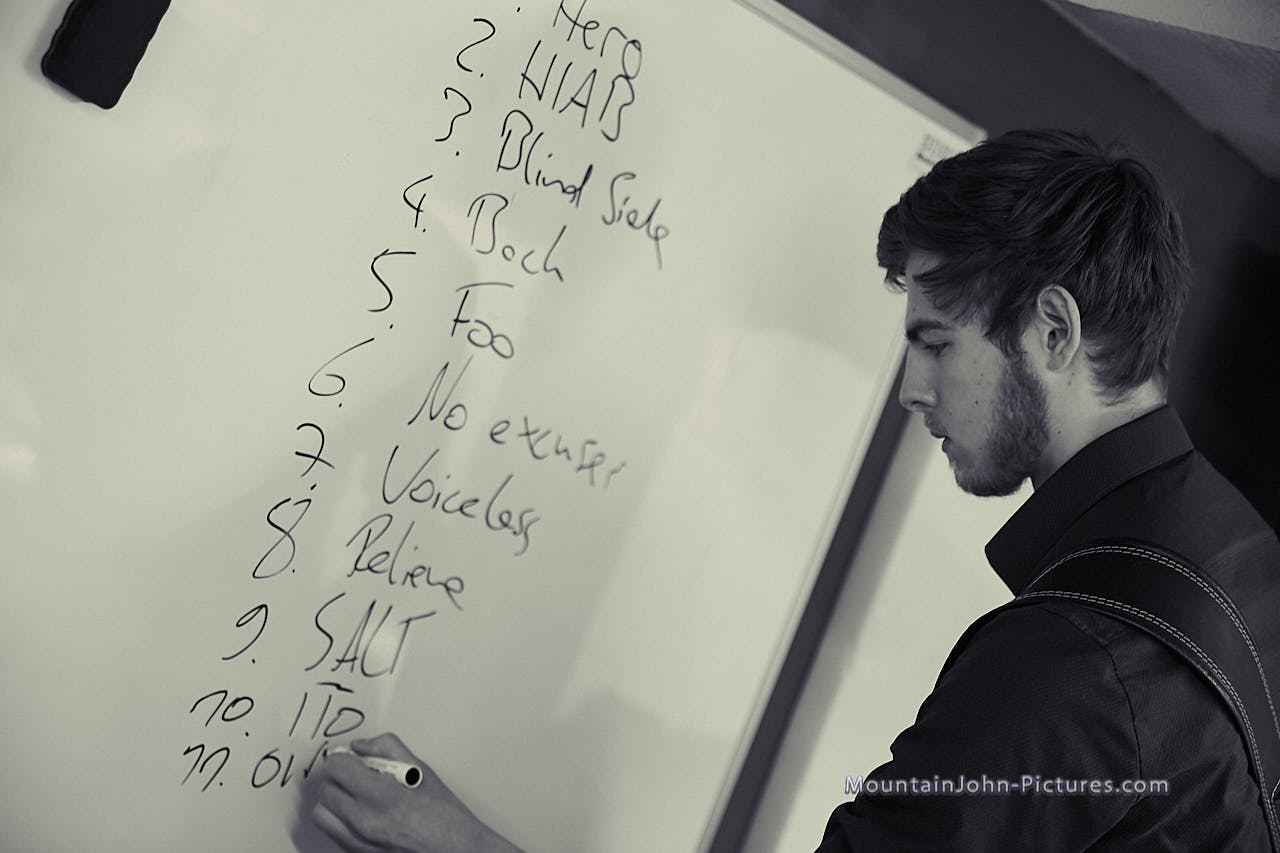 . Hero
2. HIAB
3. Blind Side
4. Bach
5. Foo
6. No excuses
7. Voiceless
8. Relieve
9. SALT
10. ITO
11.
MountainJohn-Pictures.com